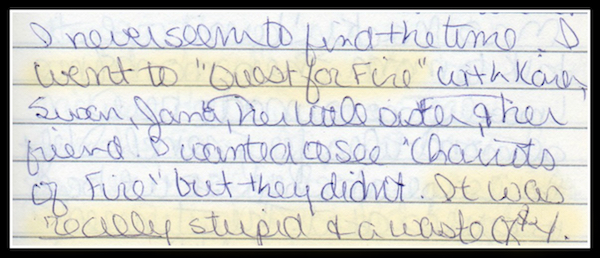 I never seem to find the time. I
went to "Quest for Fire" with Karen,
Susan, Jana, her little sister, & her
friend. I wanted to see "Chariots
of Fire" but they didn't. It was
really stupid & a waste of $4.